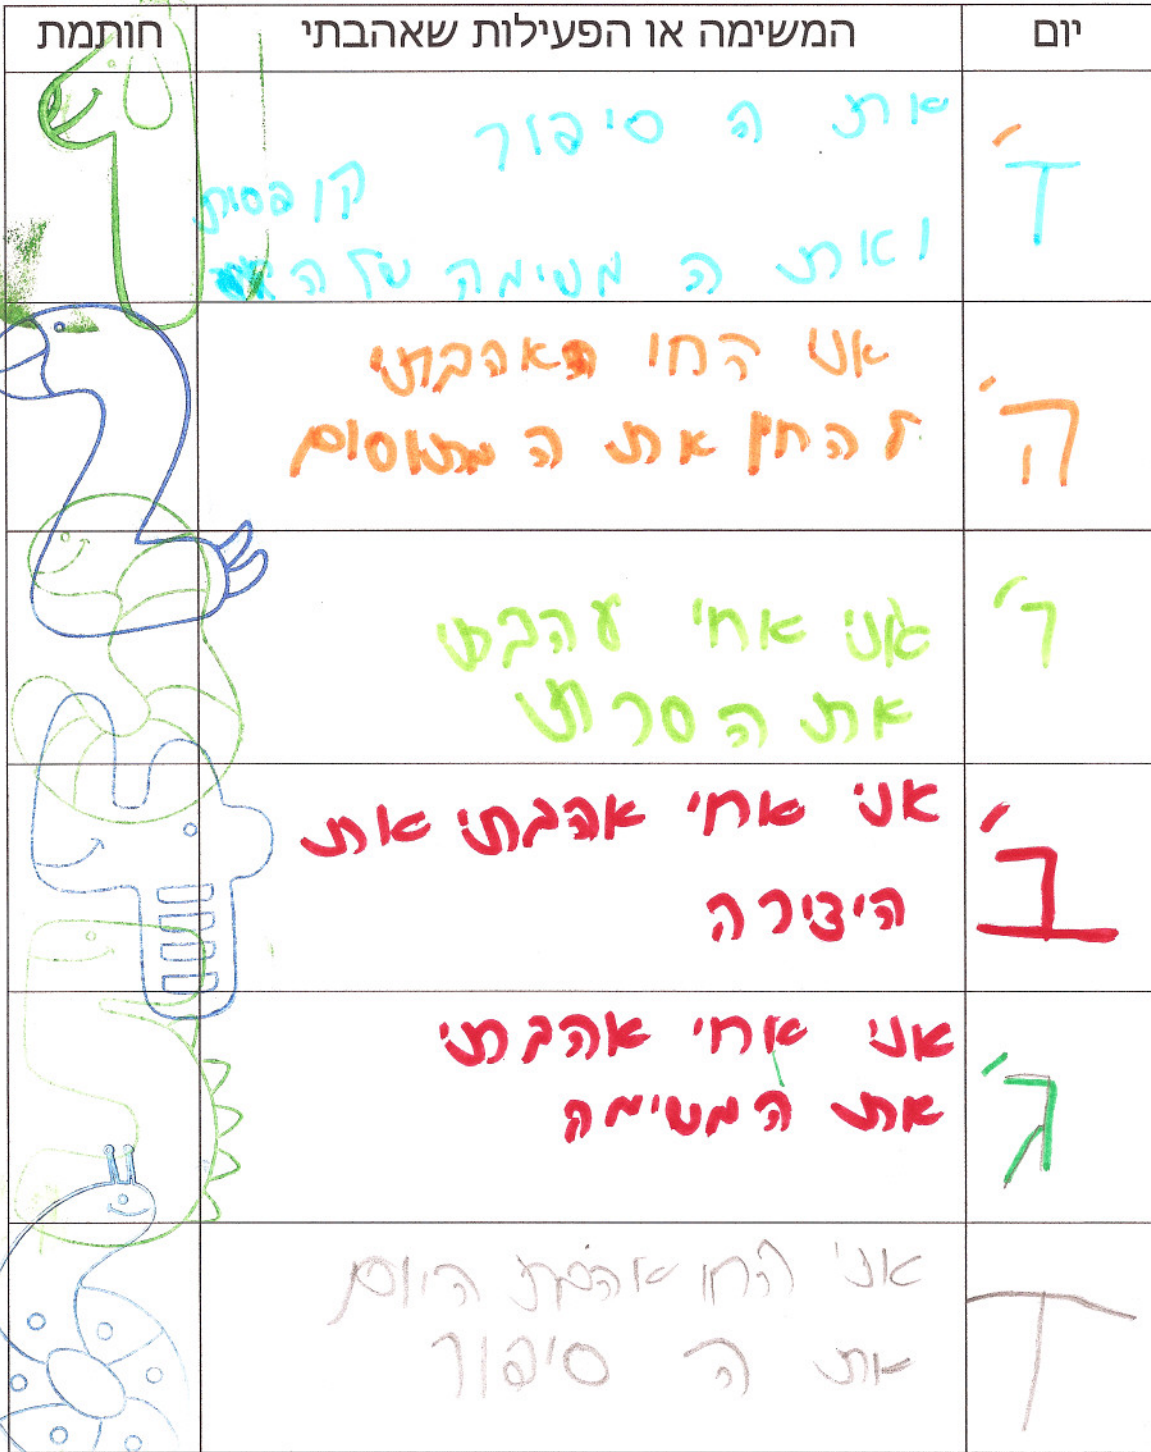 יום המשימה או הפעילות שאהבתי חותמת
ד'
את ה סיפור
קופסות
ואת ה משימה של ה
ה'
אני החי אהבתי
להחין את ה מתוסים
ו'
אני אחי עהבתי
את ה סרט
ב'
אני אחי אהבתי את
היצירה
ג'
אני אחי אהבתי
את המשימה
ד
אני החי אהבתי היום
את ה סיפור